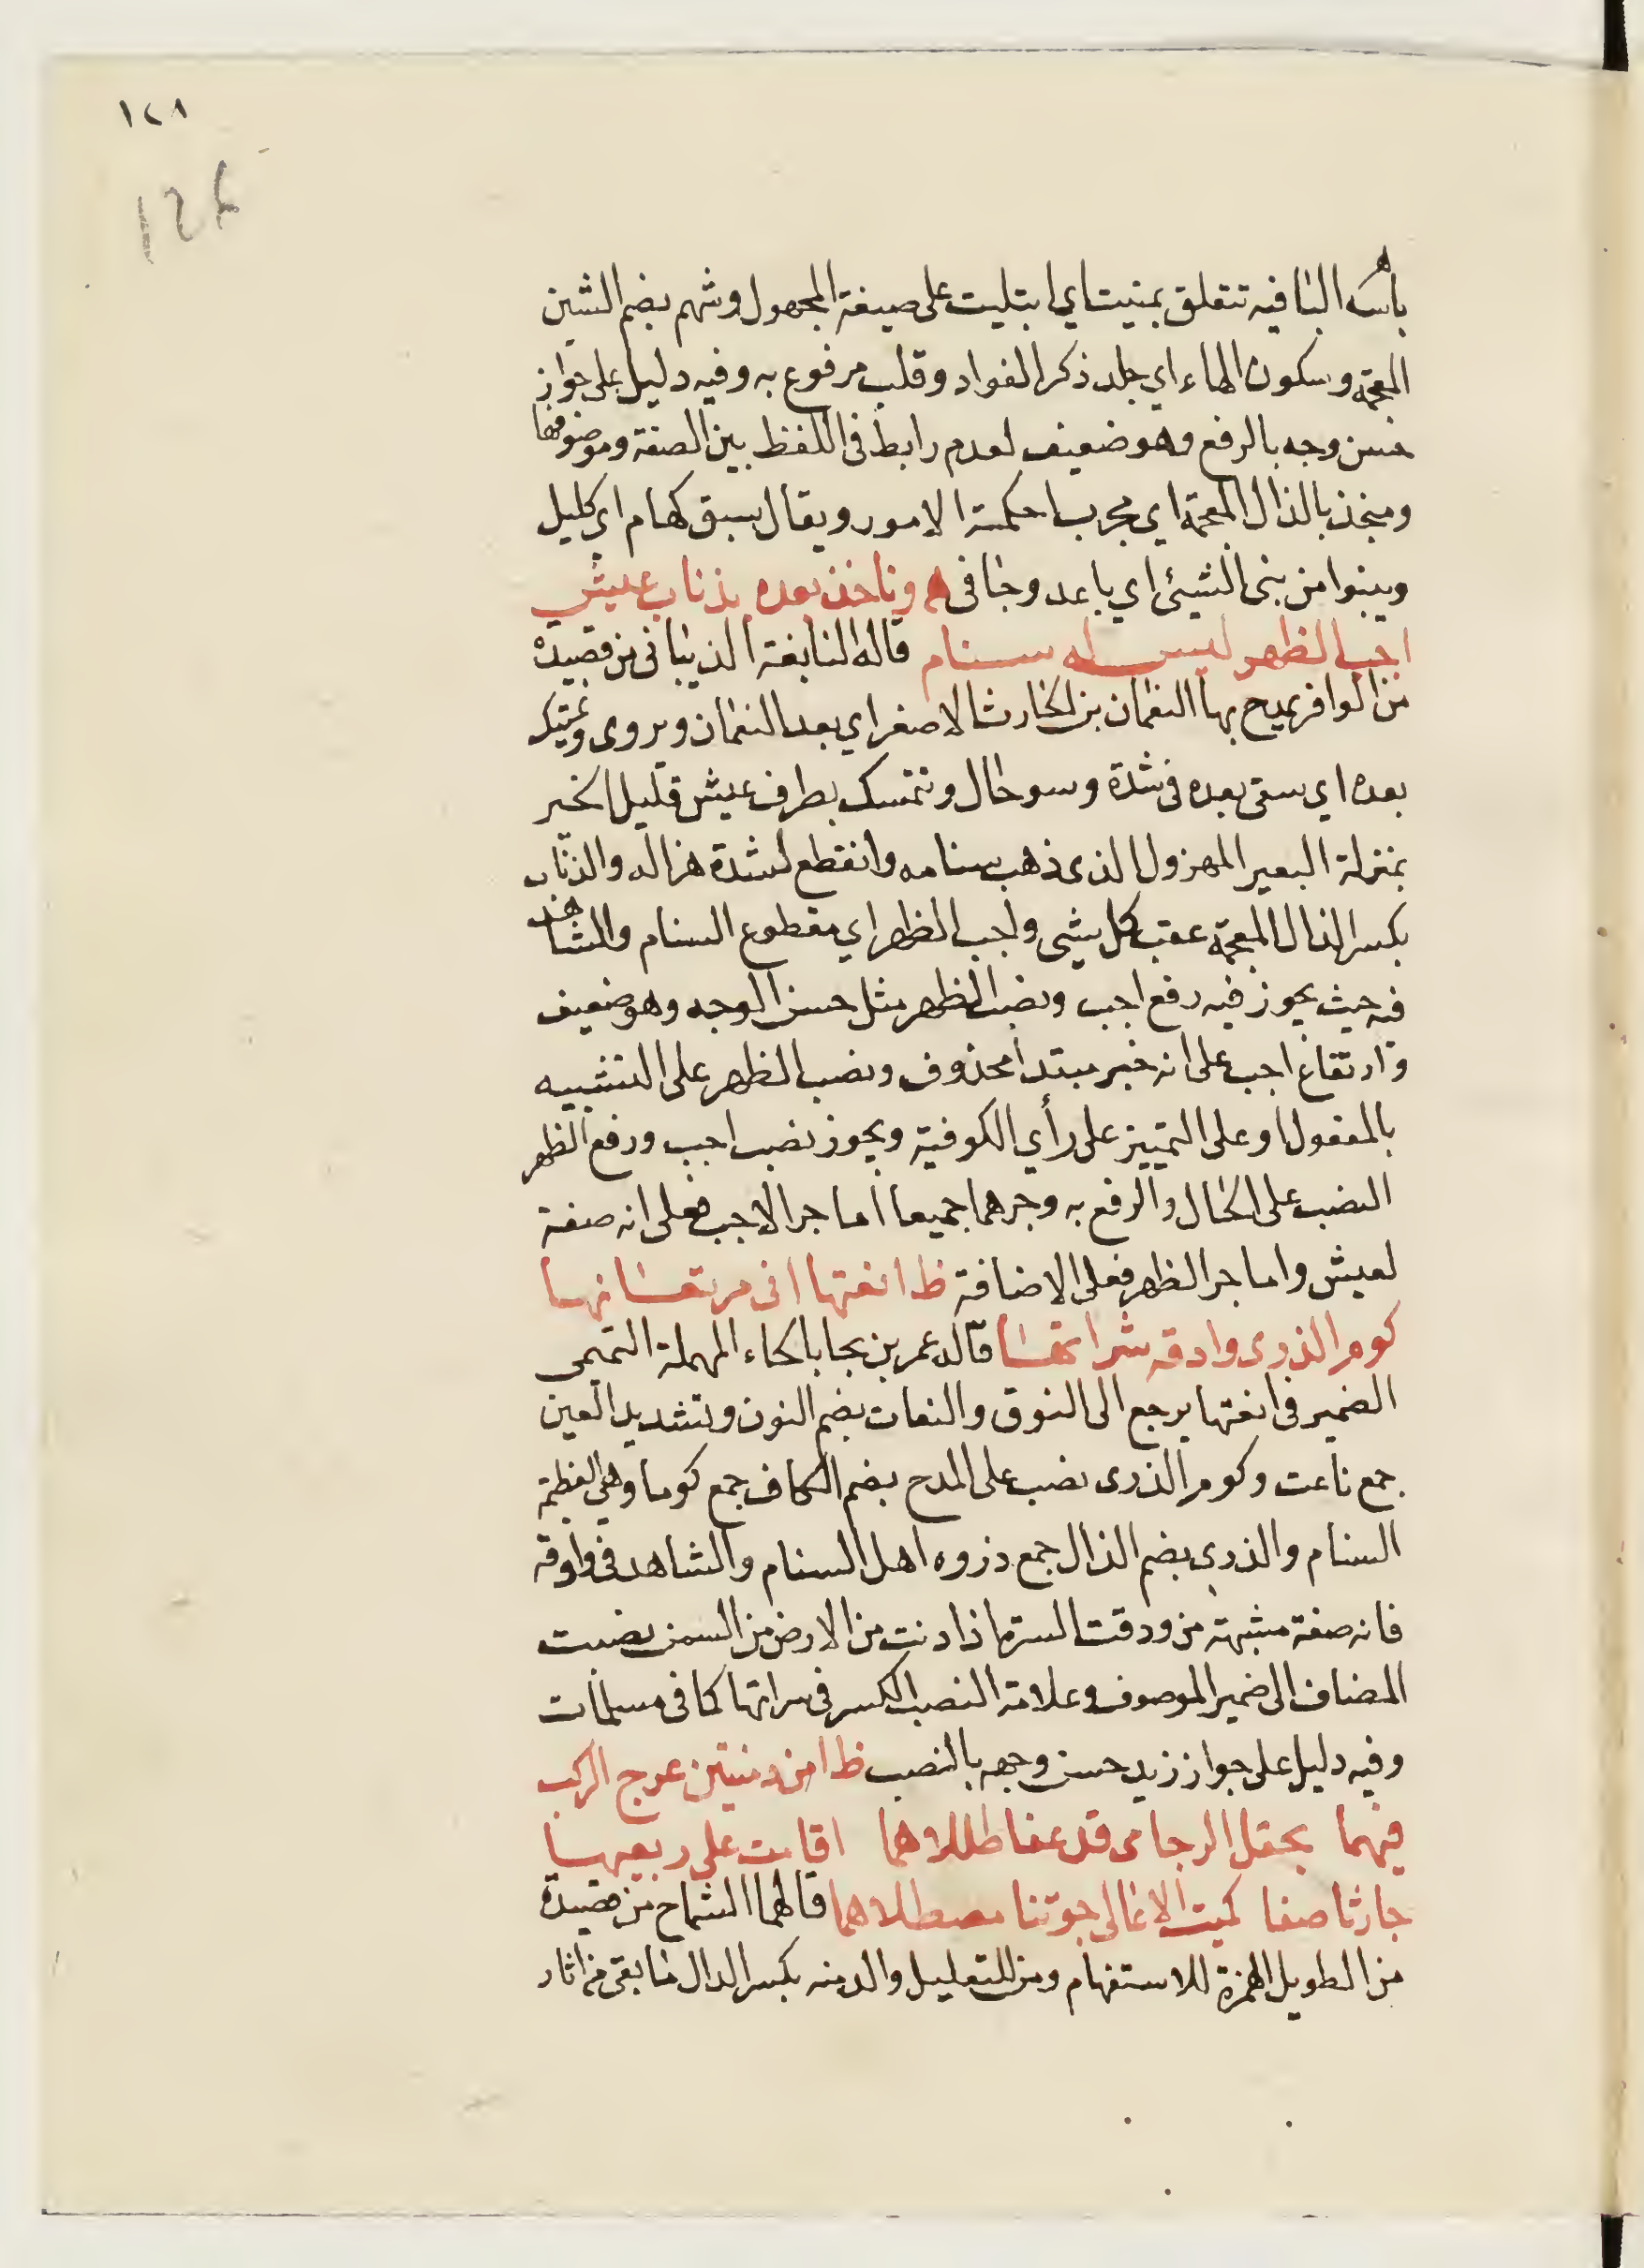 ١٢٨
١٢٨
بأسه البا فيه تتعلق بمنيت اي ابتليت على صيغة المجهول وشهم بضم الشين
المعجمة وسكون الهاء اي جلد ذكر الفواد وقلب مرفوع به وفيه دليل على جواز
حسن وجه بالرفع وهو ضعيف لعدم رابط في اللفظ بين الصفة وموضوفها
ومنجذ بالذال المعجمة اي مجرب احكمته الامور ويقال سيق كهام اي كليل
وينبوا من بنى الشيئ اي باعد وجافى وناخذ بعده بذناب عيش
اجب الظهر ليس له سنام قاله النابغة الذبياني من قصيدة
من الوافر يمدح بها النعمان بن الحارث الاصغر اي بعد النعمان ويروى ونمسك
بعده اي سقى بعده في شدة وسو حال ونتمسك بطرف عيش قليل الخير
بمنزلة البعير المهزول الذى ذهب سنامه وانقطع لشدة هزاله والذناب
بكسر الذال المعجمة عقب كل شيى واجب الظهر اي مقطوع السنام والشاهد
فيه حيث يجوز فيه رفع اجب ونصب الظهر مثل حسن الوجه وهو ضعيف
وارتفاع اجب على انه خبر مبتدا محذوف ونصب الظهر على التشبيه
بالمفعول او على التمييز على رأي الكوفية ويجوز نصب اجب ورفع الظهر
النصب على الحال والرفع به وجرهما جميعا اما جر الاجب فعلى انه صفة
لعيش واما جر الظهر فعلى الاضافة ظ انعتها انى من نعاتها
كوم الذرى وادقه سراتها قاله عمر بن لجا بالحاء المهملة التميمى
الضمير فى انعتها يرجع الى النوق والنعات بضم النون وتشديد العين
جمع ناعت وكوم الذرى نصب على المدح بضم الكاف جمع كوما وهي العظيمة
السنام والذرى بضم الذال جمع ذروه اهل السنام والشاهد في وادقه
فانه صفة مشبهة من ودقت السترة اذا دنت من الارض من السمن نصبت
المضاف الى ضمير الموصوف وعلامة النصب الكسر في سراتها كما في مسلمات
وفيه دليل على جواز زيد حسن وجهه بالنصب ظ امن دمنتين عرج الركب
فيهما بحقل الرجامى قد عفا طللاهما اقامت على ربعيهما
جارتا صفا كميت الاعالى جوتنا مصطلاهما قالهما الشماخ من قصيدة
من الطويل الهمزة للاستفهام ومن للتعليل والدمنه بكسر الدال ما بقى من اثار